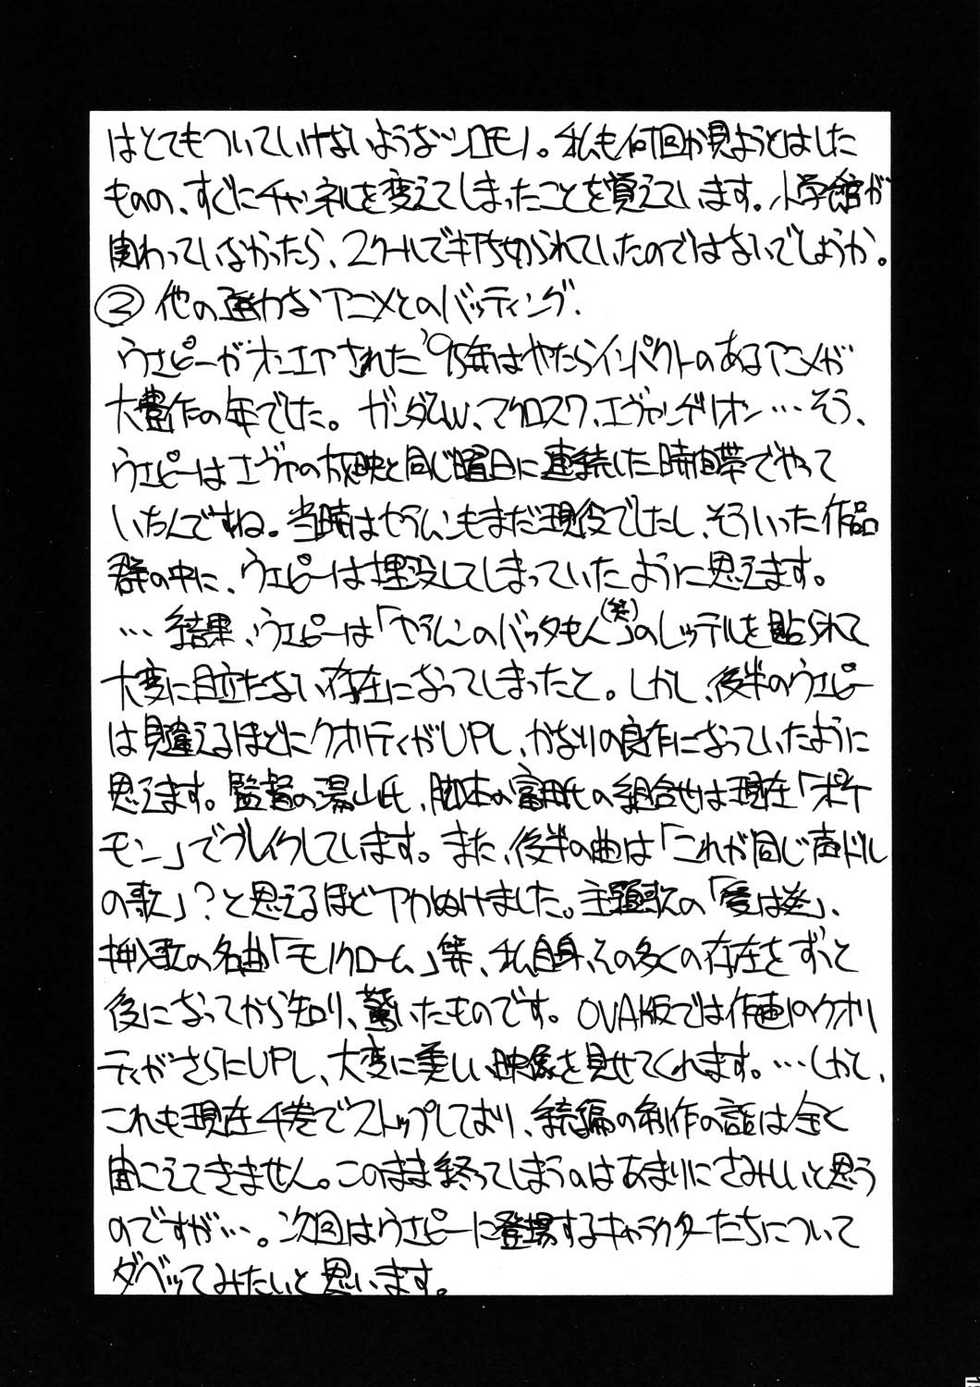 はとてもついていけないようなシロモノ。私も何回か見ようとはした
ものの、すぐにチャンネルを変えてしまったことを覚えています。小学館が
関わっていなかったら、2クールで打ち切られていたのではないでしょうか。
② 他の強力なアニメとのバッティング、
ウエピーがオンエアされた'95年はやたらインパクトのあるアニメが
大豊作の年でした。ガンダムW、マクロス7、エヴァンゲリオン…そう、
ウエピーはエヴァの放映と同じ曜日に連続した時間帯でやって
いたんですね。当時はセラムンもまだ現役でしたし、そういった作品
群の中に、ウエピーは埋没してしまっていたように思えます。
…結果、ウエピーは「セラムンのバッタもん(笑)」のレッテルを貼られて
大変に目立たない存在になってしまったと。しかし、後半のウエピー
は見違えるほどにクオリティがUPし、かなりの良作になっていたように
思えます。監督の湯山氏、脚本の富田氏の組合せは現在「ポケ
モン」でブレイクしています。また、後半の曲は「これが同じ声ドル
の歌」?と思えるほどアカぬけました。主題歌の「愛は炎」、
挿入歌の名曲「モノクローム」等、私自身、その多くの存在をずっと
後になってから知り、驚いたものです。OVA版では作画のクオリ
ティがさらにUPし、大変に美しい映像を見せてくれます。…しかし、
これも現在4巻でストップしており、続編の制作の話は全く
聞こえてきません。このまま終ってしまうのはあまりにさみしいと思う
のですが…。次回はウエピーに登場するキャラクターたちについて
ダベッてみたいと思います。